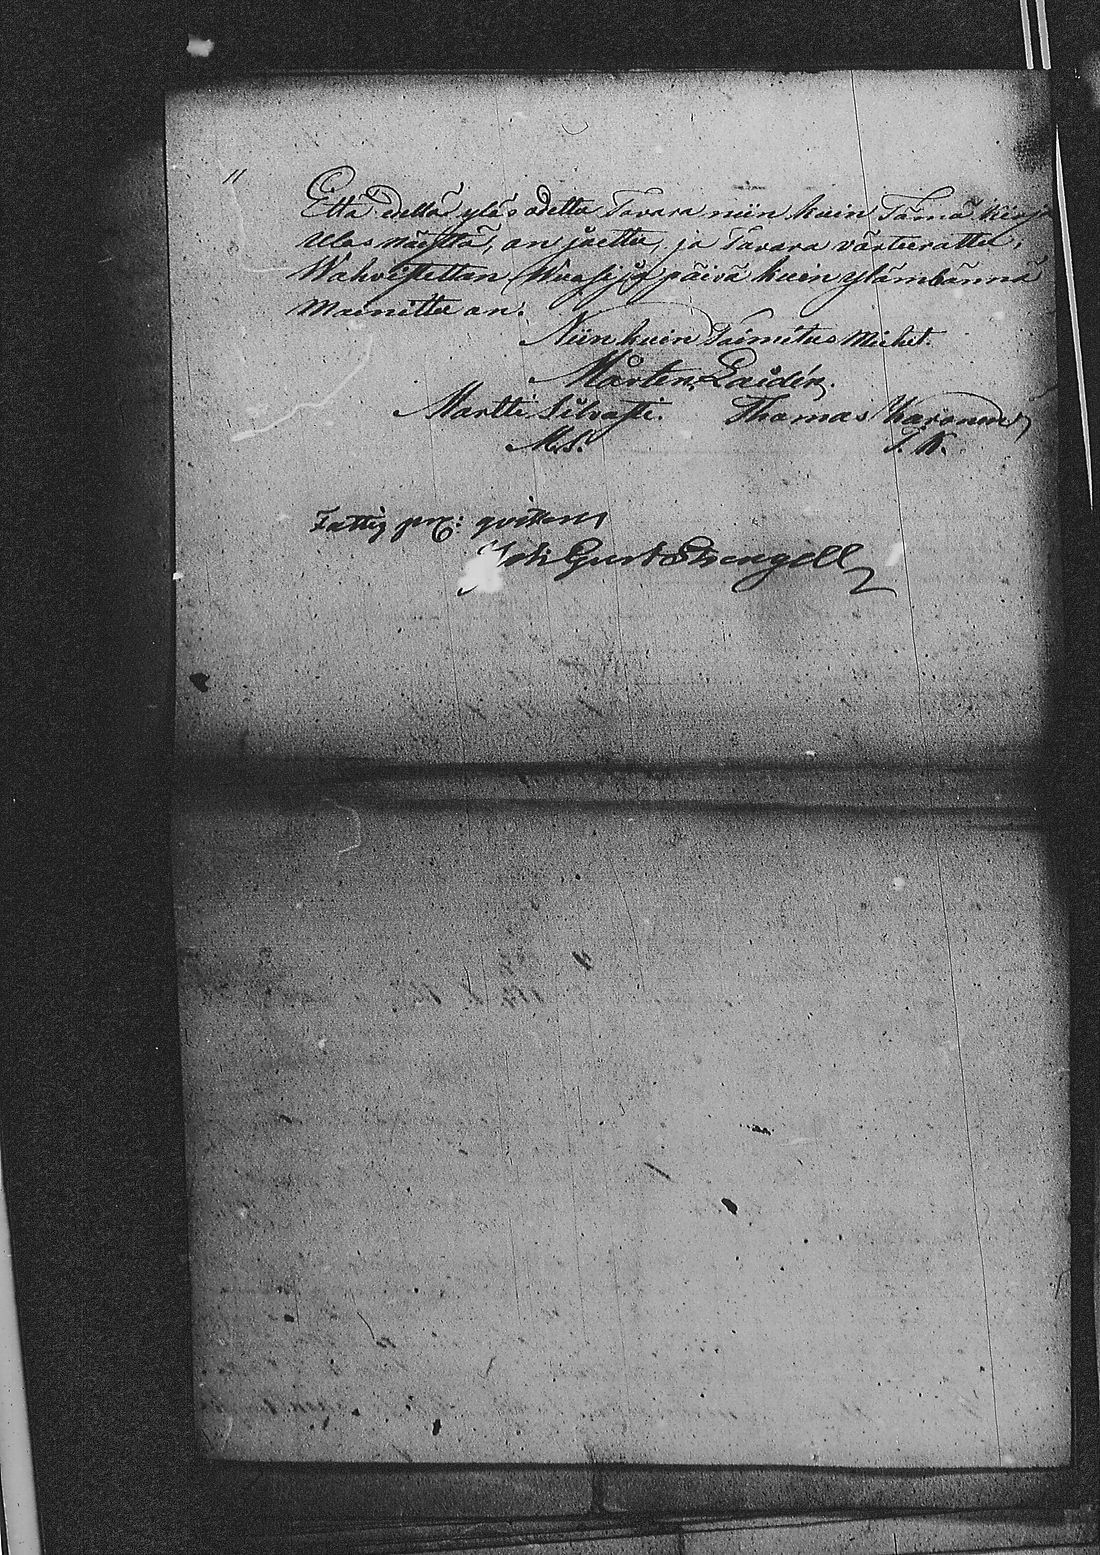 11
Että edellä ylös odettu Tavara niin kuin Tämä Kirja
Ulos näÿttä, on jaettu, ja Tavara värteerattu,
Wahvistettan Wuosi ja päivä kuin ylämbännä
Mainittu on.
Niin kuin Toimitus Miehet.
Mårten Laidén.
Martti Silvasti. Thomas Karonen
M.S. T.K.
Fattig prc: qvitteras
Joh Gust Strengell